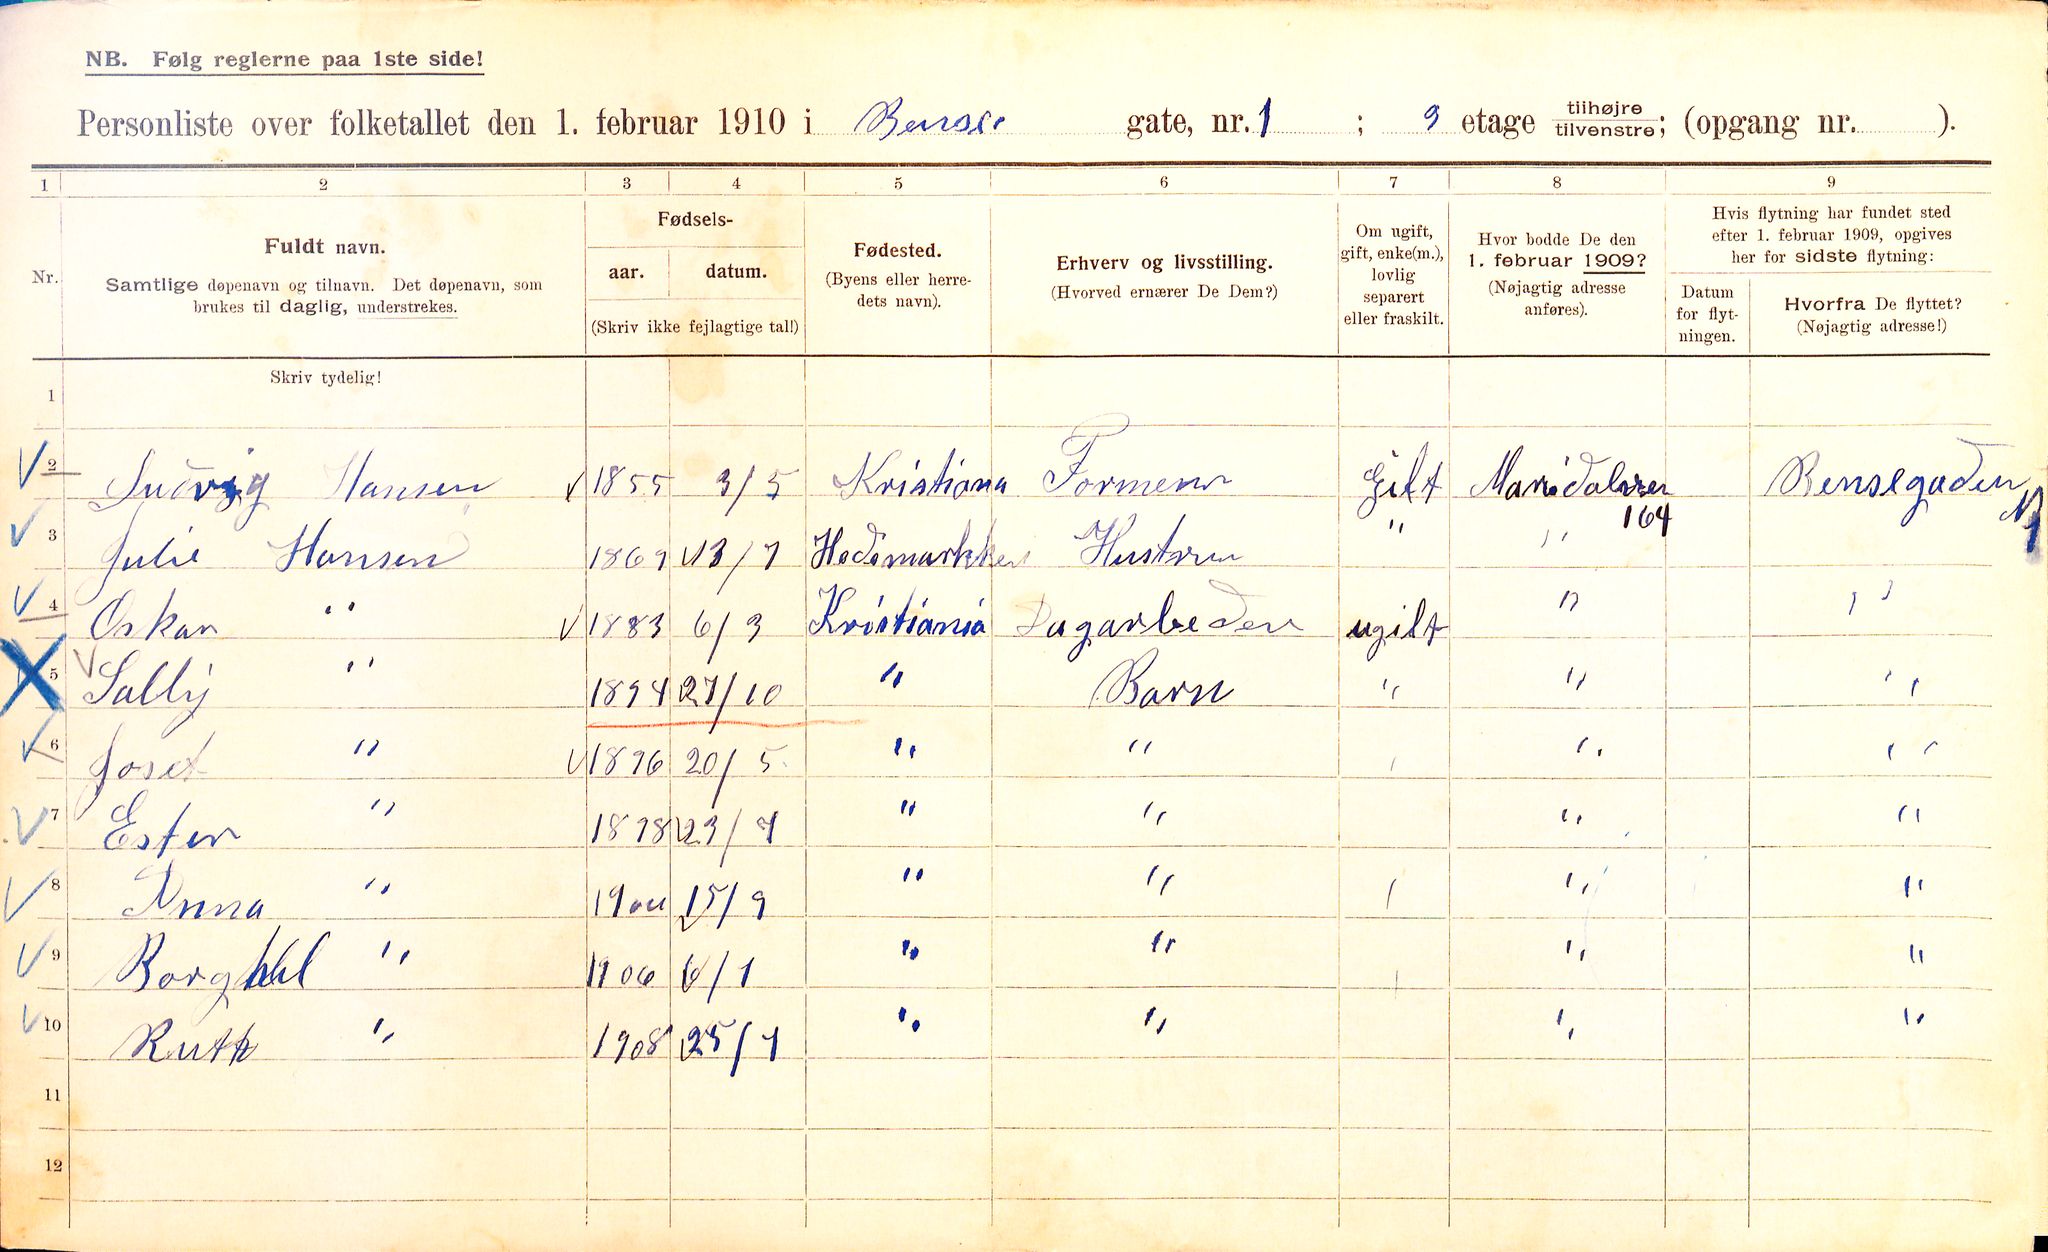 NB. Følg reglerne paa 1ste side!
Personliste over folketallet den 1. februar 1910 i Bense gate, nr. 1 ; 3 etage tilhøjre/tilvenstre; (opgang nr. ).
1 2 3 4 5 6 7 8 9
Nr.
Fuldt navn.
Samtlige døpenavn og tilnavn. Det døpenavn, som
brukes til daglig, understrekes.
Fødsels-
aar. datum.
(Skriv ikke fejlagtige tal!)
Fødested.
(Byens eller herre-
dets navn).
Erhverv og livsstilling.
(Hvorved ernærer De Dem?)
Om ugift,
gift, enke(m.),
lovlig
separert
eller fraskilt.
Hvor bodde De den
1. februar 1909?
(Nøjagtig adresse
anføres).
Hvis flytning har fundet sted
efter 1. februar 1909, opgives
her for sidste flytning:
Datum
for flyt-
ningen.
Hvorfra De flyttet?
(Nøjagtig adresse!)
Skriv tydelig!
1
2 Ludvig Hansen 1855 3/5 Kristiana Formenn Gift Maridalsveien 164 Bensegaden N 1
3 Julie Hansen 1869 13/7 Hedemarkken Hustru " " 
4 Oskar " 1883 6/3 Kristiania Dagarbeder ugift " "
5 Sally " 1894 27/10 " Barn " " "
6 Josef " 1896 20/5 " " " " "
7 Ester " 1898 23/7 " " " "
8 Anna " 1900 15/9 " " " " "
9 Borghil " 1906 6/1 " " " " "
10 Ruth " 1908 25/7 " " " "
11
12